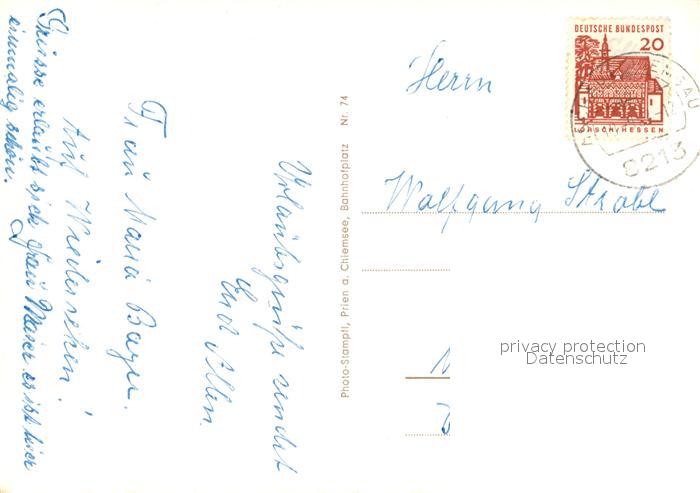 Urlaubsgrüße sendet
Euch Allen.
Frau Maria Bayer.
Auf Wiedersehen!
Grüsse erlaubt sich Frau Maier es ist hier
einmalig schön.
Photo-Stampfl, Prien a. Chiemsee, Bahnhofplatz Nr. 74
DEUTSCHE BUNDESPOST
20
LORSCH/HESSEN
8213
Herrn
Wolfgang Strobl
privacy protection
Datenschutz